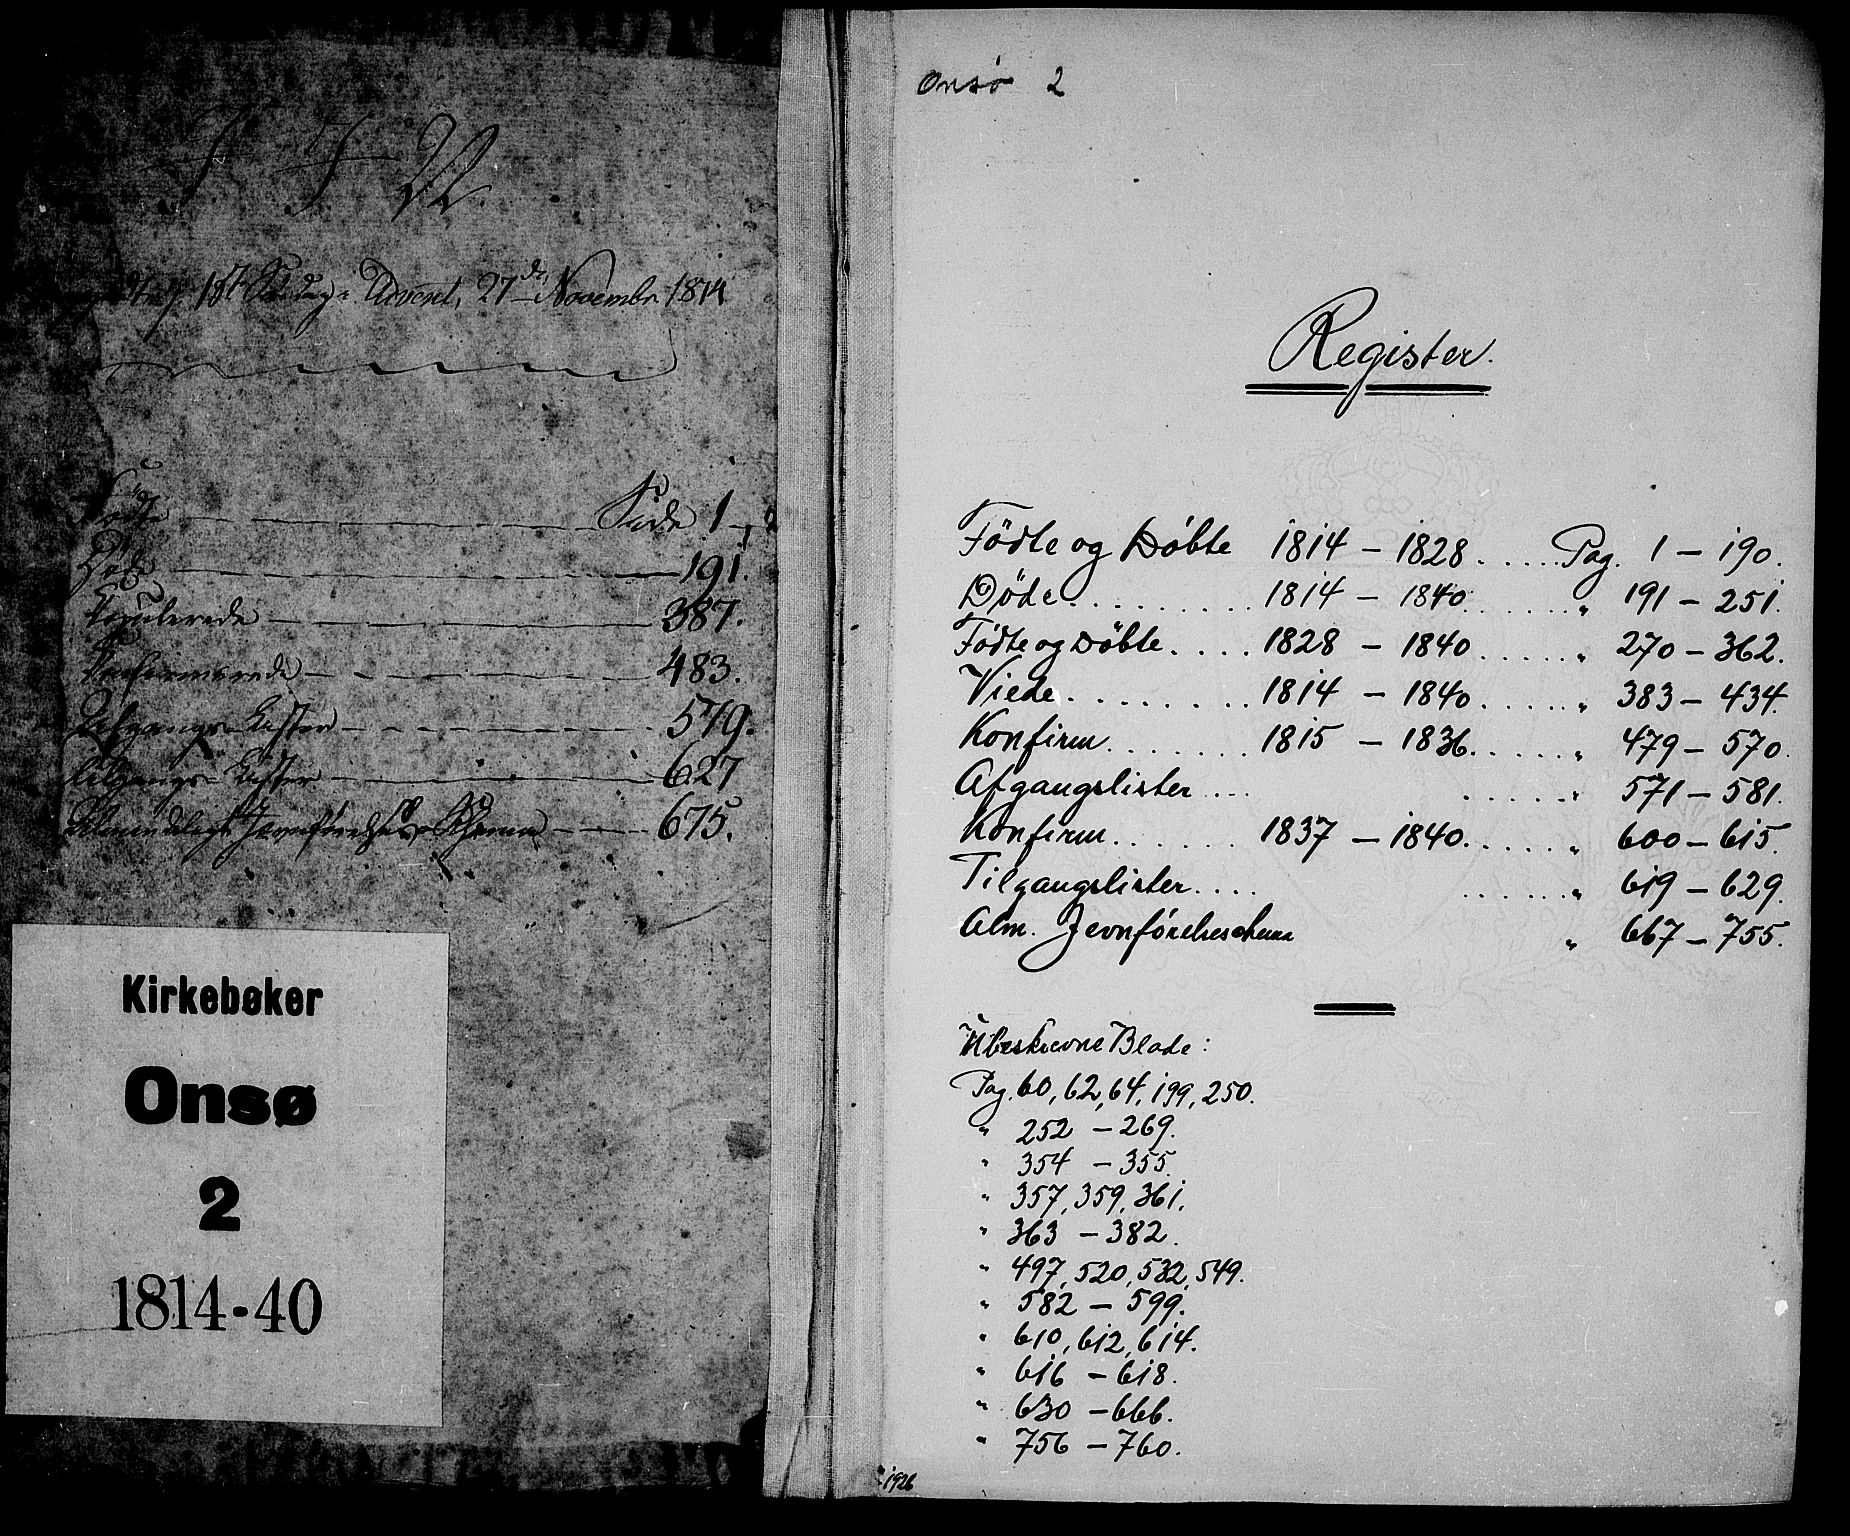 J. J. N.
1st Søndag i Advent, 27de Novembr. 1814
Födte — Side 1
Döde — 191.
Copulerede — 387.
Confirmerede — 483.
Afgangs-Lister — 579.
Tilgangs-Lister — 627
Almindeligt Jevnförelses-Schema — 675.
Kirkebøker
Onsø
2
1814-40
Onsö 2
Register.
Födte og Döbte 1814 – 1828 ..... Pag. 1 – 190.
Döde ......... 1814 – 1840 ...... " 191 – 251.
Födte og Döbte .... 1828 – 1840 ..... " 270 – 362.
Viede ......... 1814 – 1840 ..... " 383 – 434.
Konfirm ....... 1815 – 1836 ..... " 479 – 570.
Afgangslister ... ..... " 571 – 581.
Konfirm ...... 1837 – 1840 ..... " 600 – 615.
Tilgangslister .... ...... " 619 – 629.
Alm. Jevnförelseschema " 667 – 755.
Ubeskrevne Blade:
Pag. 60, 62, 64, 199, 250.
" 252 – 269.
" 354 – 355.
" 357, 359, 361.
" 363 – 382.
" 497, 520, 532, 549.
" 582 – 599.
" 610, 612, 614.
" 616 – 618.
" 630 – 666.
" 756 – 760.
1926